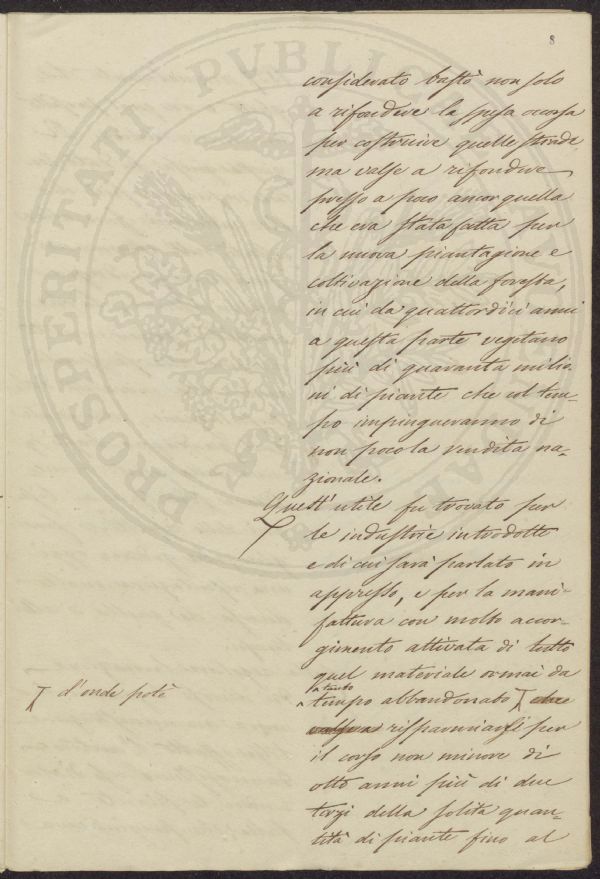 8
considerato bastò non solo
a rifondere la spesa occorsa
per costruire quelle strade
ma valse a rifondere
presso a poco ancor quella
che era stata fatta per
la nuova piantagione e
coltivazione della foresta,
in cui da quattordici anni
a questa parte vegetano
più di quaranta milio-
ni di piante che col tem-
po impingueranno di
non poco la rendita na-
zionale.
Quest'utile fu trovato per
le industrie introdotte
e di cui sarà parlato in
appresso, e per la mani-
fattura con molto accor-
gimento attivata di tutto
quel materiale ormai da
tanto
tempo abbandonato che
d'onde potè
valeva risparmiarsi per
il corso non minore di
otto anni più di due
terzi della solita quan-
tità di piante fino al
PROSPERITATI PVBLICAE